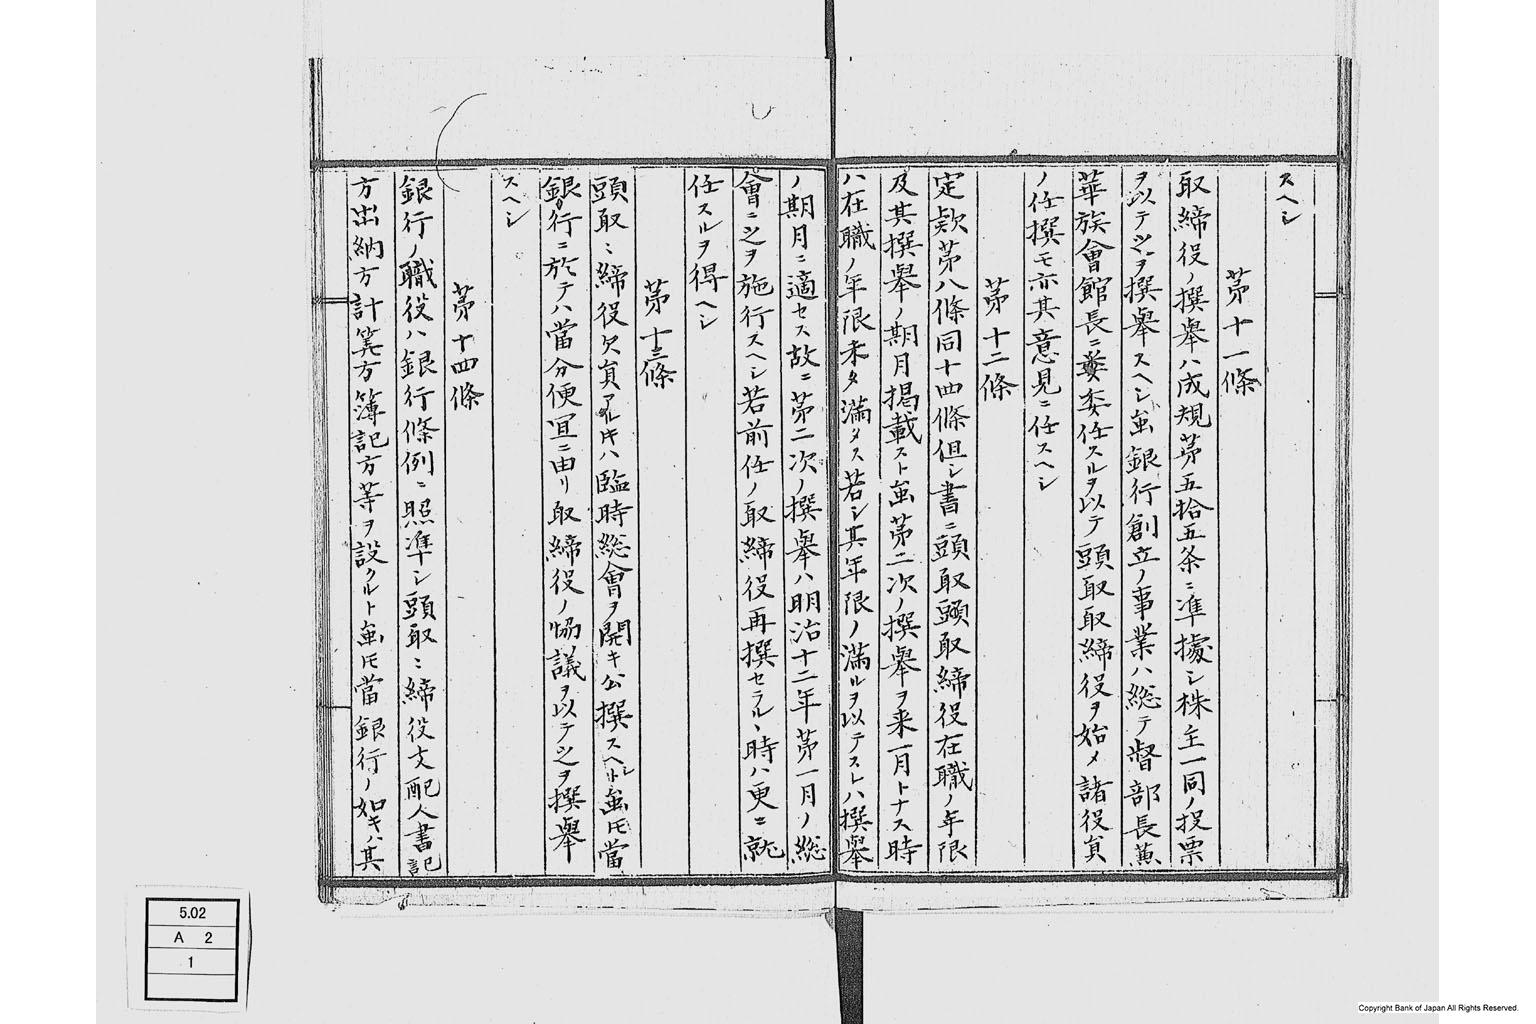 スヘシ
第十一條
取締役ノ撰舉ハ成規第五拾五条ニ準據シ株主一同ノ投票
ヲ以テ之ヲ撰舉スヘシ虽銀行創立ノ事業ハ総テ督部長兼
華族會館長ニ委任スルヲ以テ頭取取締役ヲ始メ諸役員
ノ任撰モ亦其意見ニ任スヘシ
第十二條
定款第八條同十四條但シ書ニ頭取取締役在職ノ年限
及其撰舉ノ期月掲載スト虽第二次ノ撰舉ヲ来一月トナス時
ハ在職ノ年限未タ満タス若シ其年限ノ満ルヲ以テスレハ撰舉
ノ期月ニ適セス故ニ第二次ノ撰舉ハ明治十二年第一月ノ総
會ニ之ヲ施行スヘシ若前任ノ取締役再撰セラルヽ時ハ更ニ就
任スルヲ得ヘシ
第十三條
頭取ミ締役欠員アル片ハ臨時総會ヲ開キ公撰スヘシト虽モ當
銀行ニ於テハ當分便宜ニ由リ取締役ノ協議ヲ以テ之ヲ撰舉
スヘシ
第十四條
銀行ノ職役ハ銀行條例ニ照準シ頭取ミ締役支配人書記
方出納方計筭方簿記方等ヲ設クルト虽モ當銀行ノ如キハ其
5.02
A 2
1
Copyright Bank of Japan All Rights Reserved.